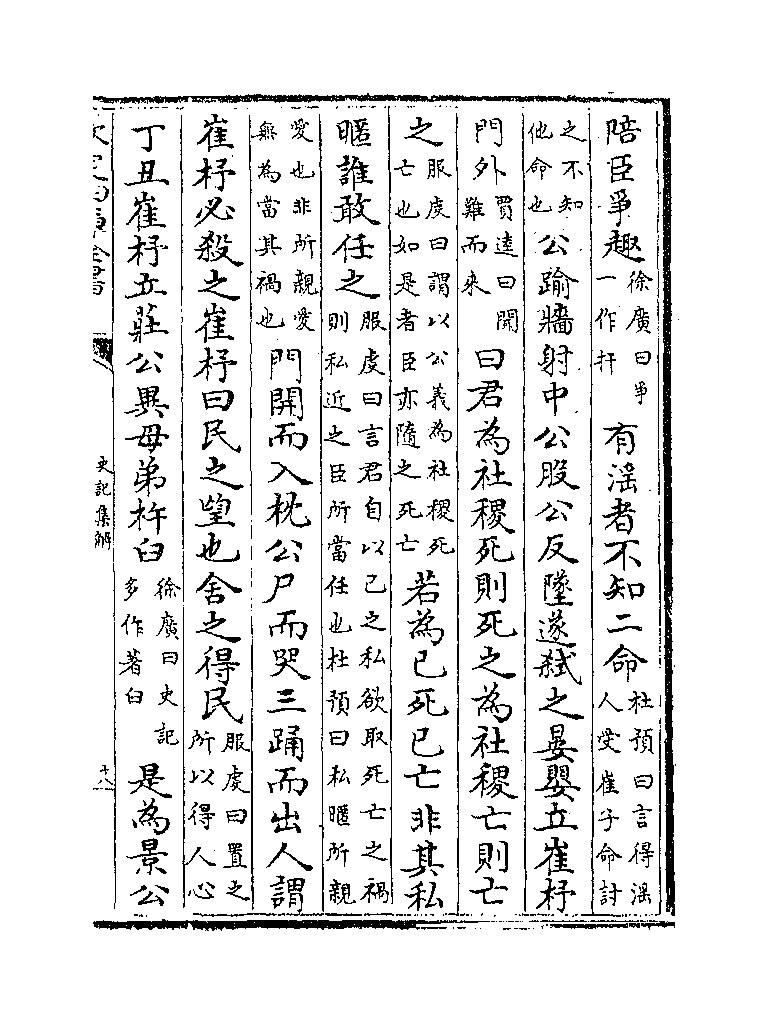 陪臣爭趣徐廣曰爭一作扞有淫者不知二命杜預曰言得淫人受崔子命討
之不知他命也公踰牆射中公股公反墜遂弑之晏嬰立崔杼
門外賈逵曰聞難而來曰君為社稷死則死之為社稷亡則亡
之服虔曰謂以公義為社稷死亡也如是者臣亦隨之死亡若為已死已亡非其私
暱誰敢任之服虔曰言君自以己之私欲取死亡之禍則私近之臣所當任也杜預曰私暱所親
愛也非所親愛無為當其禍也門開而入枕公尸而哭三踊而出人謂
崔杼必殺之崔杼曰民之望也舍之得民服虔曰置之所以得人心
丁丑崔杼立莊公異母弟杵臼徐廣曰史記多作著臼是為景公
史記集解
十八